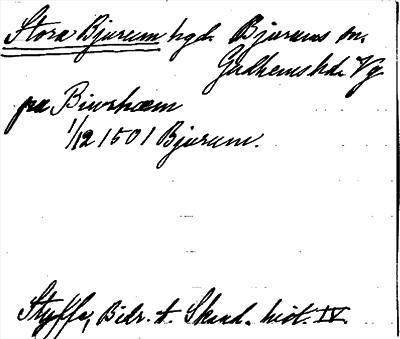 Stora Bjurum hgd. Bjurums sn.
Gudhems hd. Vg
pa Biwrhæm
1/12 1501 Bjurum.
Styffe, Bidr. t. Skand. hist. IV.